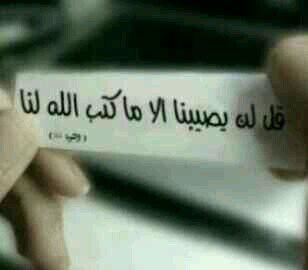 قل لن يصيبنا الا ما كتب الله لنا